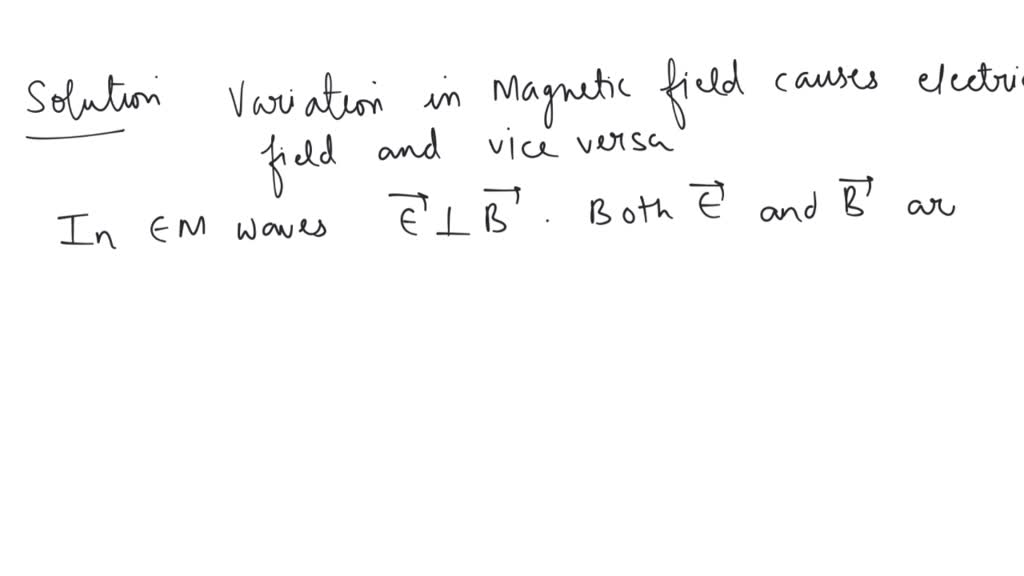 Solution Variation in Magnetic field causes electric
field and vice versa
In EM waves E⃗ ⊥ B⃗ . Both E⃗ and B⃗ ar